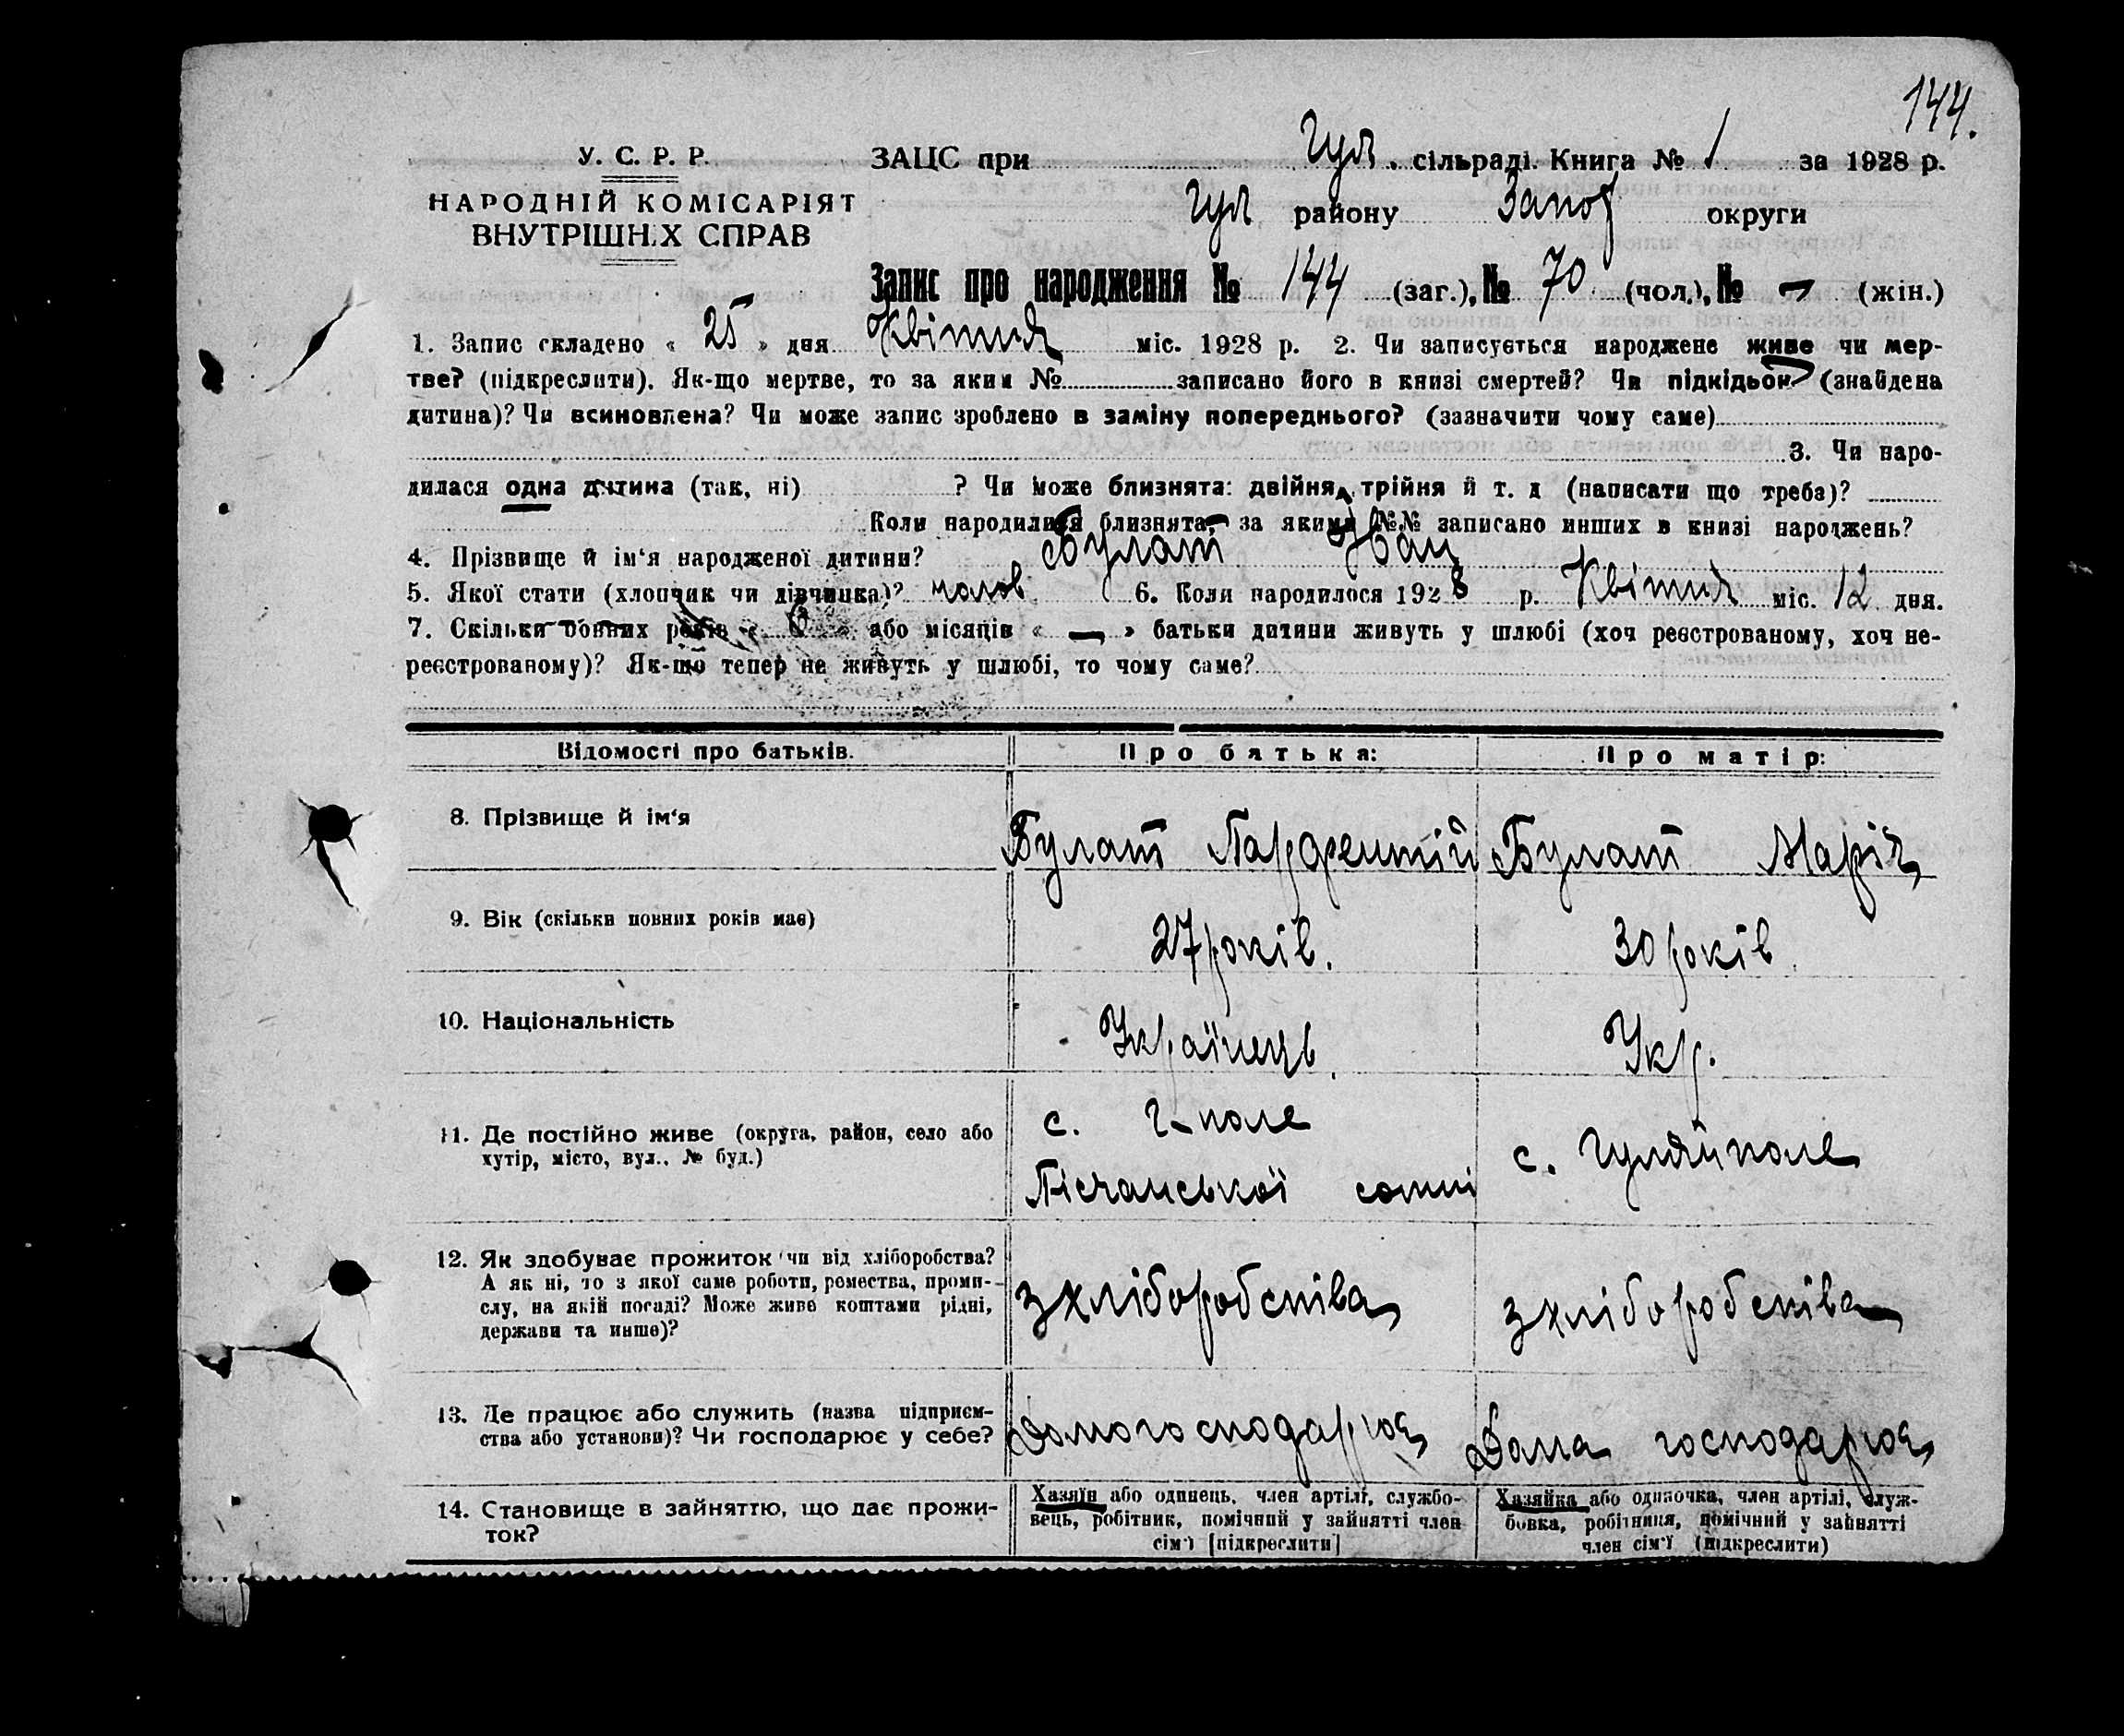 144.
У. С. Р. Р.
НАРОДНІЙ КОМІСАРІЯТ
ВНУТРІШНІХ СПРАВ
ЗАЦС при Гул. сільраді. Книга № 1 за 1928 р.
Гул району Запор округи
Запис про народження № 144 (заг.), № 70 (чол.), № — (жін.)
1. Запис складено « 25 » дня Квітня міс. 1928 р. 2. Чи записується народжене живе чи мер-
тве? (підкреслити). Як-що мертве, то за яким № записано його в книзі смертей? Чи підкідьок (знайдена
дитина)? Чи всиновлена? Чи може запис зроблено в заміну попереднього? (зазначити чому саме)
3. Чи наро-
дилася одна дитина (так, ні) ? Чи може близнята: двійня, трійня й т. д (написати що треба)?
Коли народилися близнята, за якими №№ записано инших в книзі народжень?
4. Прізвище й ім‘я народженої дитини? Булат Іван
5. Якої стати (хлопчик чи дівчинка)? чолов 6. Коли народилося 1928 р. Квітня міс. 12 дня.
7. Скільки повних років « 6 » або місяців « — » батьки дитини живуть у шлюбі (хоч реєстрованому, хоч не-
реєстрованому)? Як-що тепер не живуть у шлюбі, то чому саме?
Відомості про батьків. Про батька: Про матір:
8. Прізвище й ім‘я Булат Парфентій Булат Марія
9. Вік (скільки повних років має) 27 років. 30 років
10. Національність Українець. Укр.
11. Де постійно живе (округа, район, село або
хутір, місто, вул., № буд.)
с. Г-поле
Пісчанської сотні
с. Гуляйполе
12. Як здобуває прожиток чи від хліборобства?
А як ні, то з якої саме роботи, ремества, проми-
слу, на якій посаді? Може живе коштами рідні,
держави та инше)?
з хліборобства
з хліборобства
13. Де працює або служить (назва підприєм-
ства або установи)? Чи господарює у себе?
Домогосподарює
Дома господарює
14. Становище в зайняттю, що дає прожи-
ток?
Хазяїн або одинець, член артілі, службо-
вець, робітник, помічний у зайнятті член
сім‘ї [підкреслити]
Хазяйка або одиночка, член артілі, служ-
бовка, робітниця, помічний у зайнятті
член сім‘ї (підкреслити)